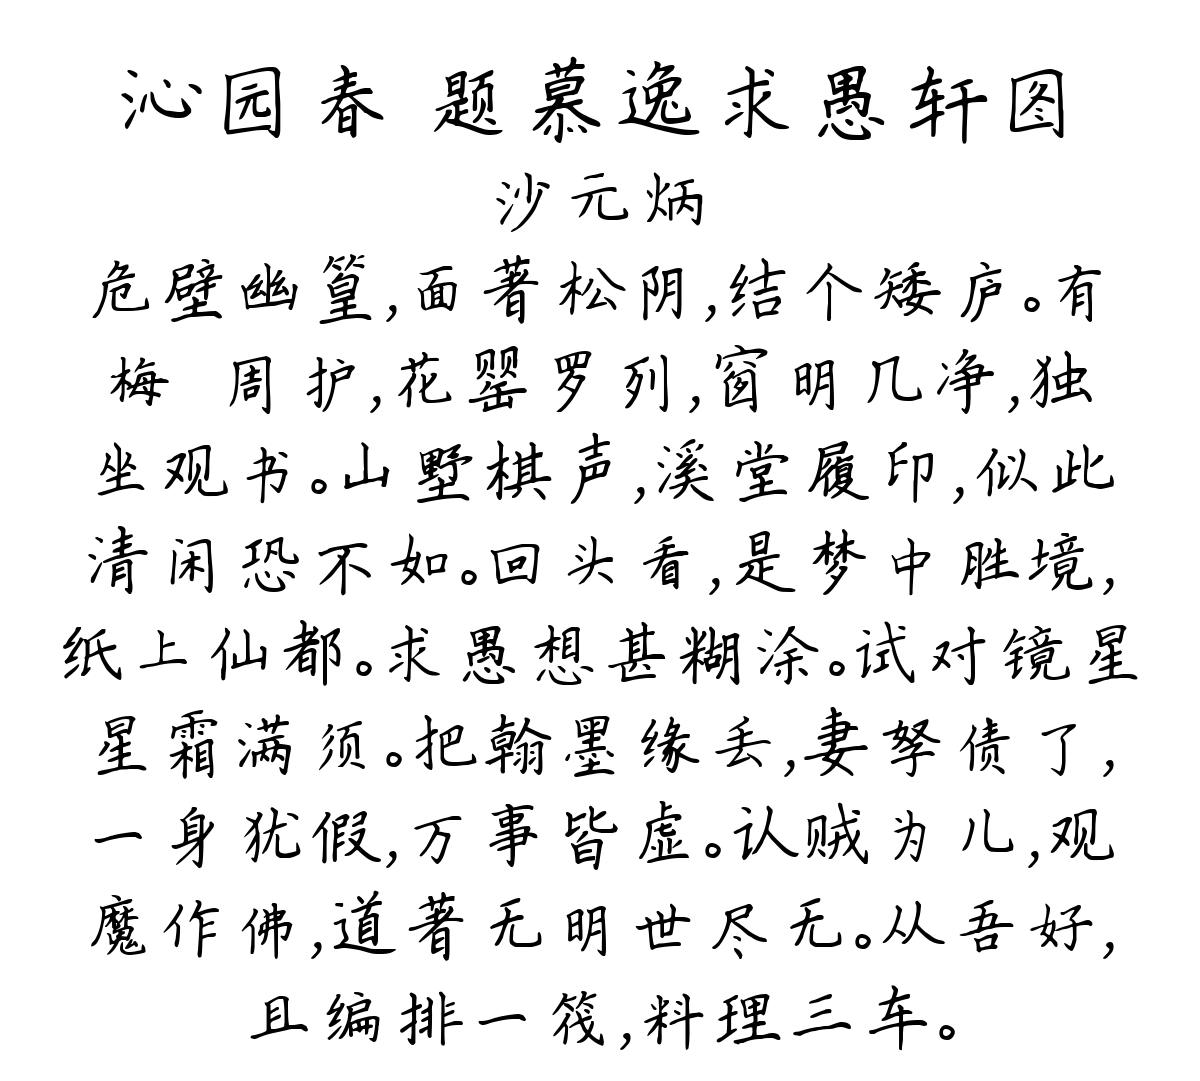 沁园春 题慕逸求愚轩图
沙元炳
危壁幽篁,面著松阴,结个矮庐。有
梅 周护,花罂罗列,窗明几净,独
坐观书。山墅棋声,溪堂履印,似此
清闲恐不如。回头看,是梦中胜境,
纸上仙都。求愚想甚糊涂。试对镜星
星霜满须。把翰墨缘丢,妻孥债了,
一身犹假,万事皆虚。认贼为儿,观
魔作佛,道著无明世尽无。从吾好,
且编排一筏,料理三车。